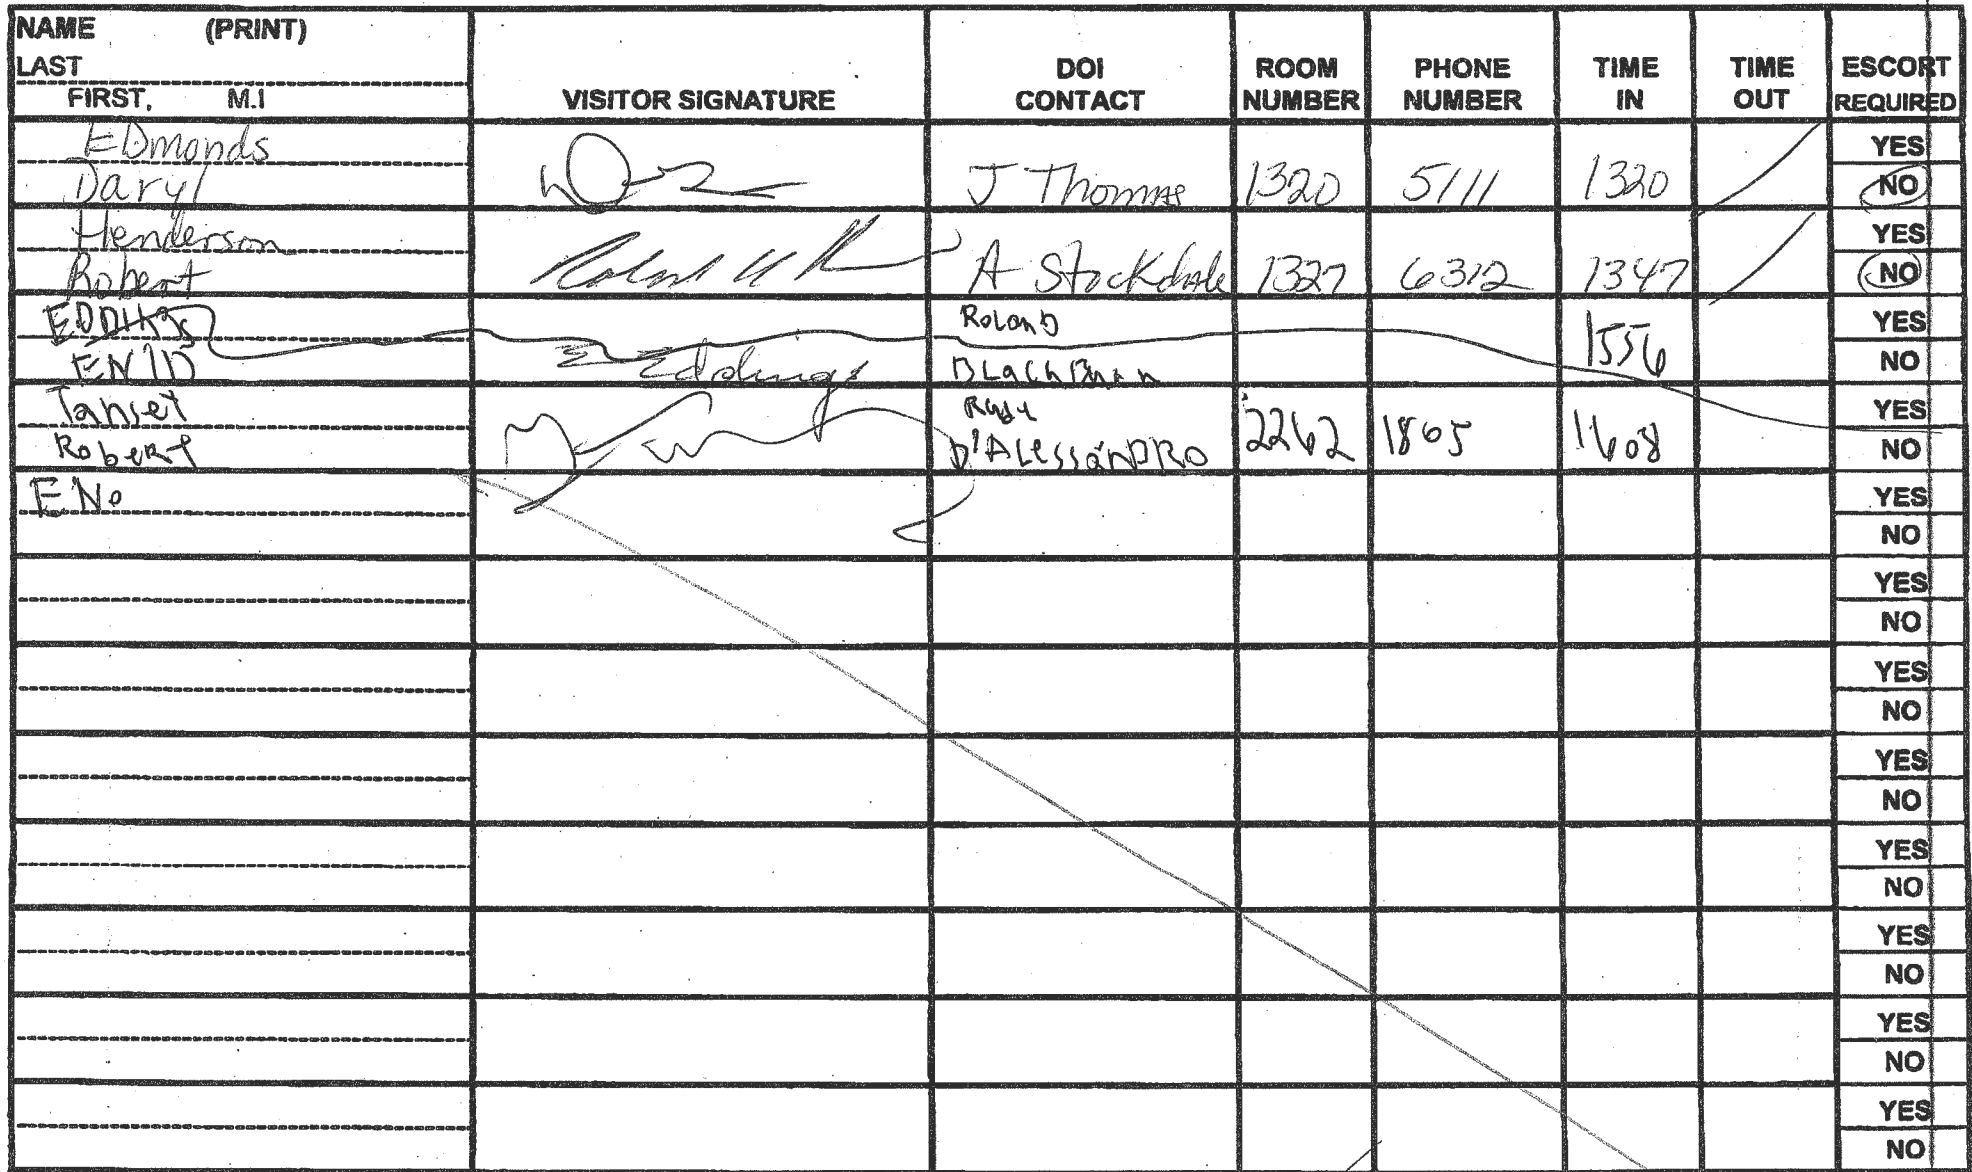 NAME (PRINT)
LAST
FIRST, M.I
VISITOR SIGNATURE
DOI CONTACT
ROOM NUMBER
PHONE NUMBER
TIME IN
TIME OUT
ESCORT REQUIRED
EDmonds
Daryl
J Thomas 1320 5111 1320
YES
NO
Henderson
Robert
A Stockdale 1327 6312 1347
YES
NO
EDDINGS
ENID
E Eddings
RolanD
BLackman
1556
YES
NO
Robert
Rudy
D'ALessANDRO
2262 1865 1608
YES
NO
YES
NO
YES
NO
YES
NO
YES
NO
YES
NO
YES
NO
YES
NO
YES
NO